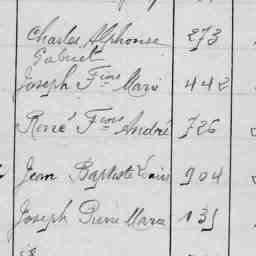 Charles Alphonse 273
Gabriel
Joseph Fçois Marie 442
René Fçois André 726
Jean Baptiste Louis 904
Joseph Pierre Marie 135